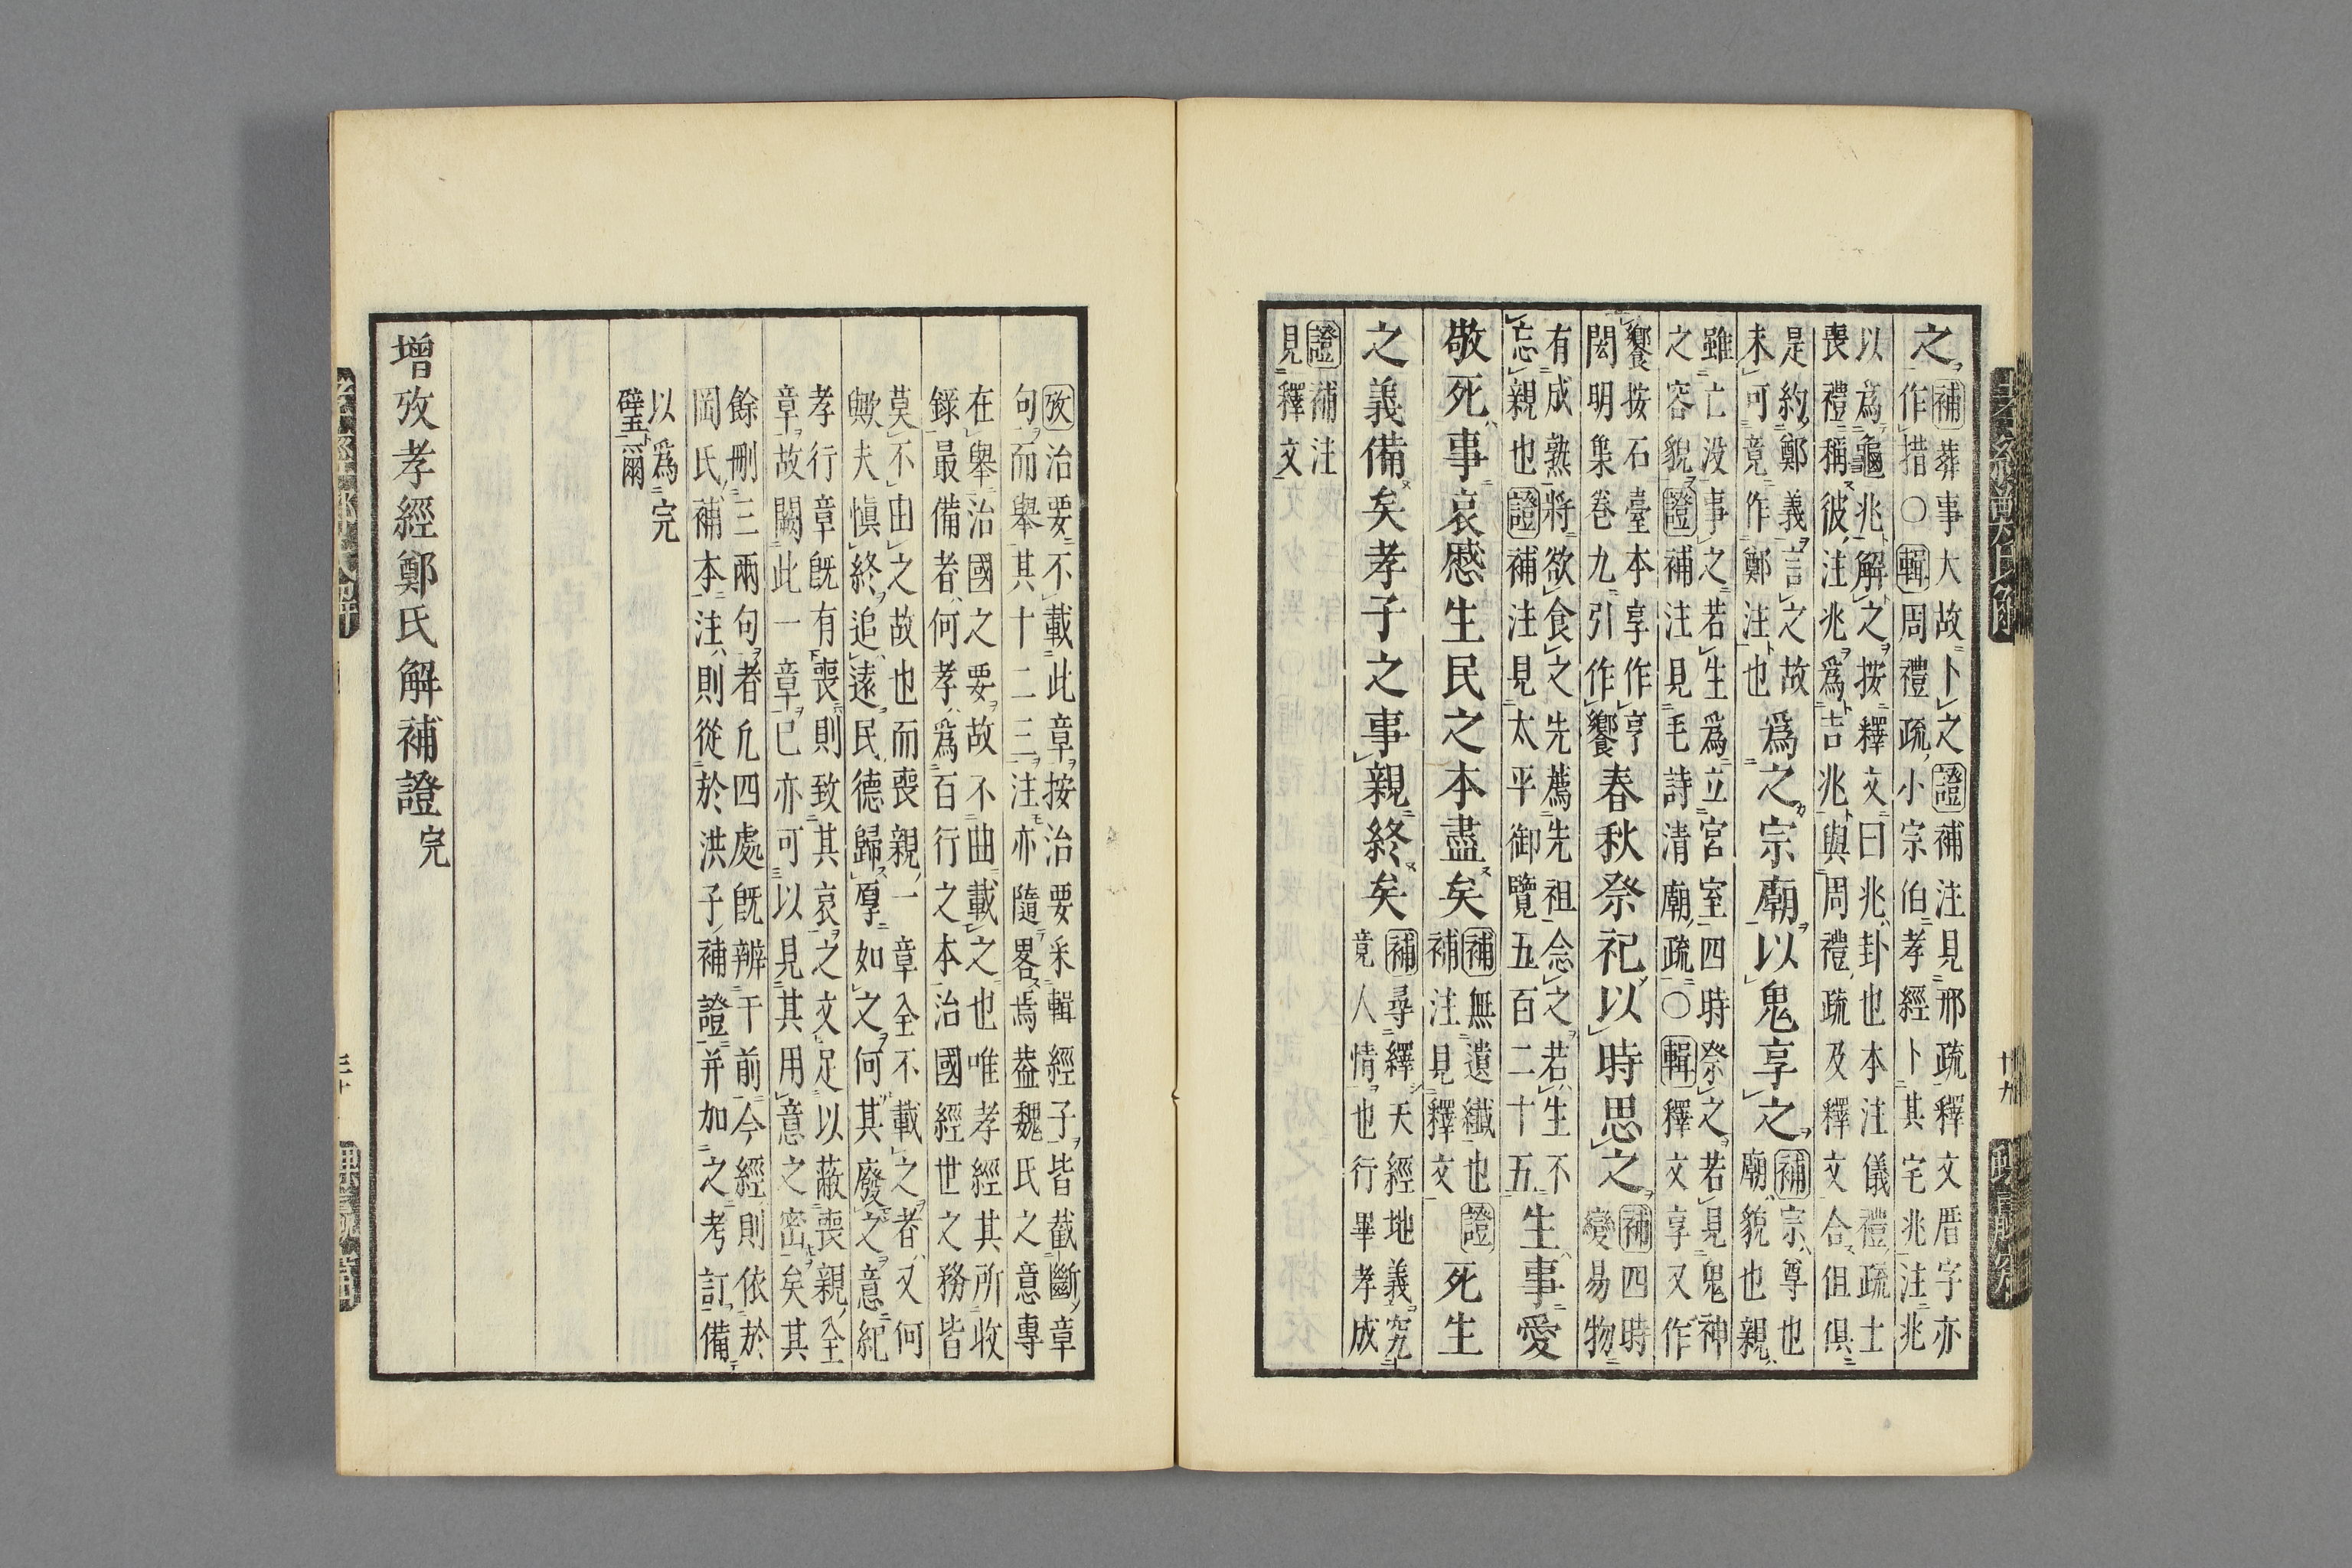 之補葬事大故卜之證補注見邢疏釋文厝字亦
作措○輯周禮疏小宗伯孝經卜其宅兆注兆
以爲龜兆解之按釋文曰兆卦也本注儀禮疏士
喪禮稱彼注兆爲吉兆與周禮疏及釋文合但俱
是約鄭義言之故
未可竟作鄭注也
爲之宗廟以鬼享之補宗尊也
廟貌也親
雖亡没事之若生爲立宮室四時祭之若見鬼神
之容貌證補注見毛詩清廟疏○輯釋文享又作
饗按石臺本享作亨
閎明集卷九引作饗
春秋祭祀以時思之補四時
變易物
有成熟將欲食之先薦先祖念之若生不
忘親也證補注見太平御覽五百二十五
生事愛
敬死事哀慼生民之本盡矣補無遺纖也證
補注見釋文
死生
之義備矣孝子之事親終矣補尋繹天經地義究
竟人情也行畢孝成
證補注
見釋文
廿九
攷治要不載此章按治要采輯經子皆截斷章
句而舉其十二三注亦隨畧焉葢魏氏之意專
在舉治國之要故不曲載之也唯孝經其所收
錄最備者何孝爲百行之本治國經世之務皆
莫不由之故也而喪親一章全不載之者又何
歟夫愼終追遠民德歸厚如之何其廢之意紀
孝行章旣有喪則致其哀之文足以蔽喪親全
章故闕此一章已亦可以見其用意之密矣其
餘刪三兩句者凡四處旣辨于前今經則依於
岡氏補本注則從於洪子補證并加之考訂備
以爲完
璧玉爾
增攷孝經鄭氏解補證完
三十